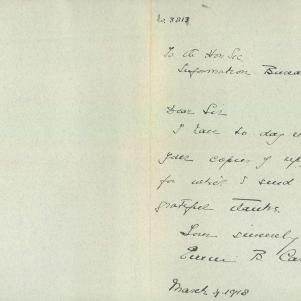 To the Hon Sec
Information Burea
Dear Sir
I have to day
your copies of
for which I send
grateful thanks.
Yours sincerely
B Car
March 4. 1918